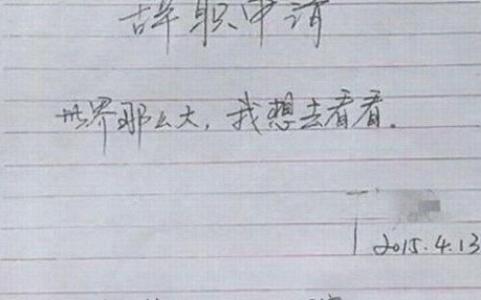 辞职申请
世界那么大，我想去看看．
2015.4.13